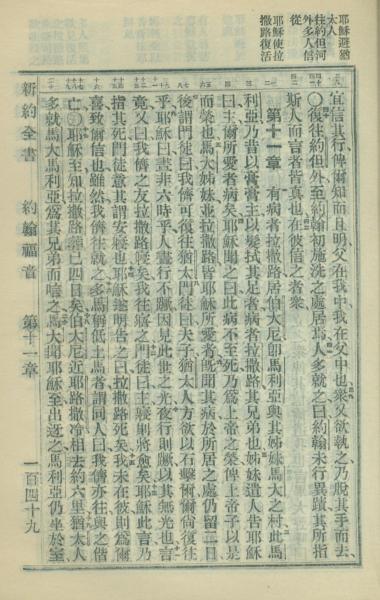 耶穌避猶
太人
往約但河
外多人信
從
耶穌使拉
撒路復活
宜信其行俾爾知而且明父在我中我在父中也衆又欲執之乃脫其手而去
〇復往約但外至約翰初施洗之處居焉人多就之曰約翰未行異蹟其所指
斯人而言者皆真也在彼信之者衆
第十一章 有病者拉撒路居伯大尼卽馬利亞與其姊妹馬大之村此馬
利亞乃昔以膏膏主以髮拭其足者病者拉撒路其兄弟也姊妹遣人告耶穌
曰主爾所愛者病矣耶穌聞之曰此病不至死乃爲上帝之榮俾上帝子以是
而榮也馬大姊妹並拉撒路皆耶穌所愛者旣聞其病於所居之處仍留二日
後謂門徒曰我儕可復往猶太門徒曰夫子猶太人方欲以石擊爾爾尙復往
乎耶穌曰晝非六時乎人晝行不蹶因見此世之光夜行則蹶以其無光也言
竟又曰我儕之友拉撒路寢矣我往寤之門徒曰主寢則將愈矣耶穌此言乃
指其死門徒意其謂安寢也耶穌遂明告之曰拉撒路死矣我未在彼則爲爾
喜致爾信也雖然我儕往就之多馬稱低土馬者謂同人曰我儕亦往與之偕
亡〇耶穌至知拉撒路墓已四日矣伯大尼近耶路撒冷相去約六里猶太人
多就馬大馬利亞爲其兄弟而唁之馬大聞耶穌至出迓之馬利亞仍坐於室
新約全書 約翰福音 第十一章 一百四十九